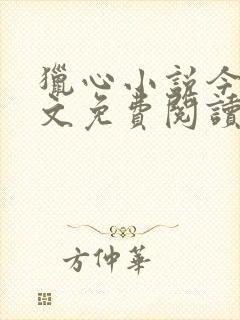 獵心小説今
文免費閱讀
方仲華